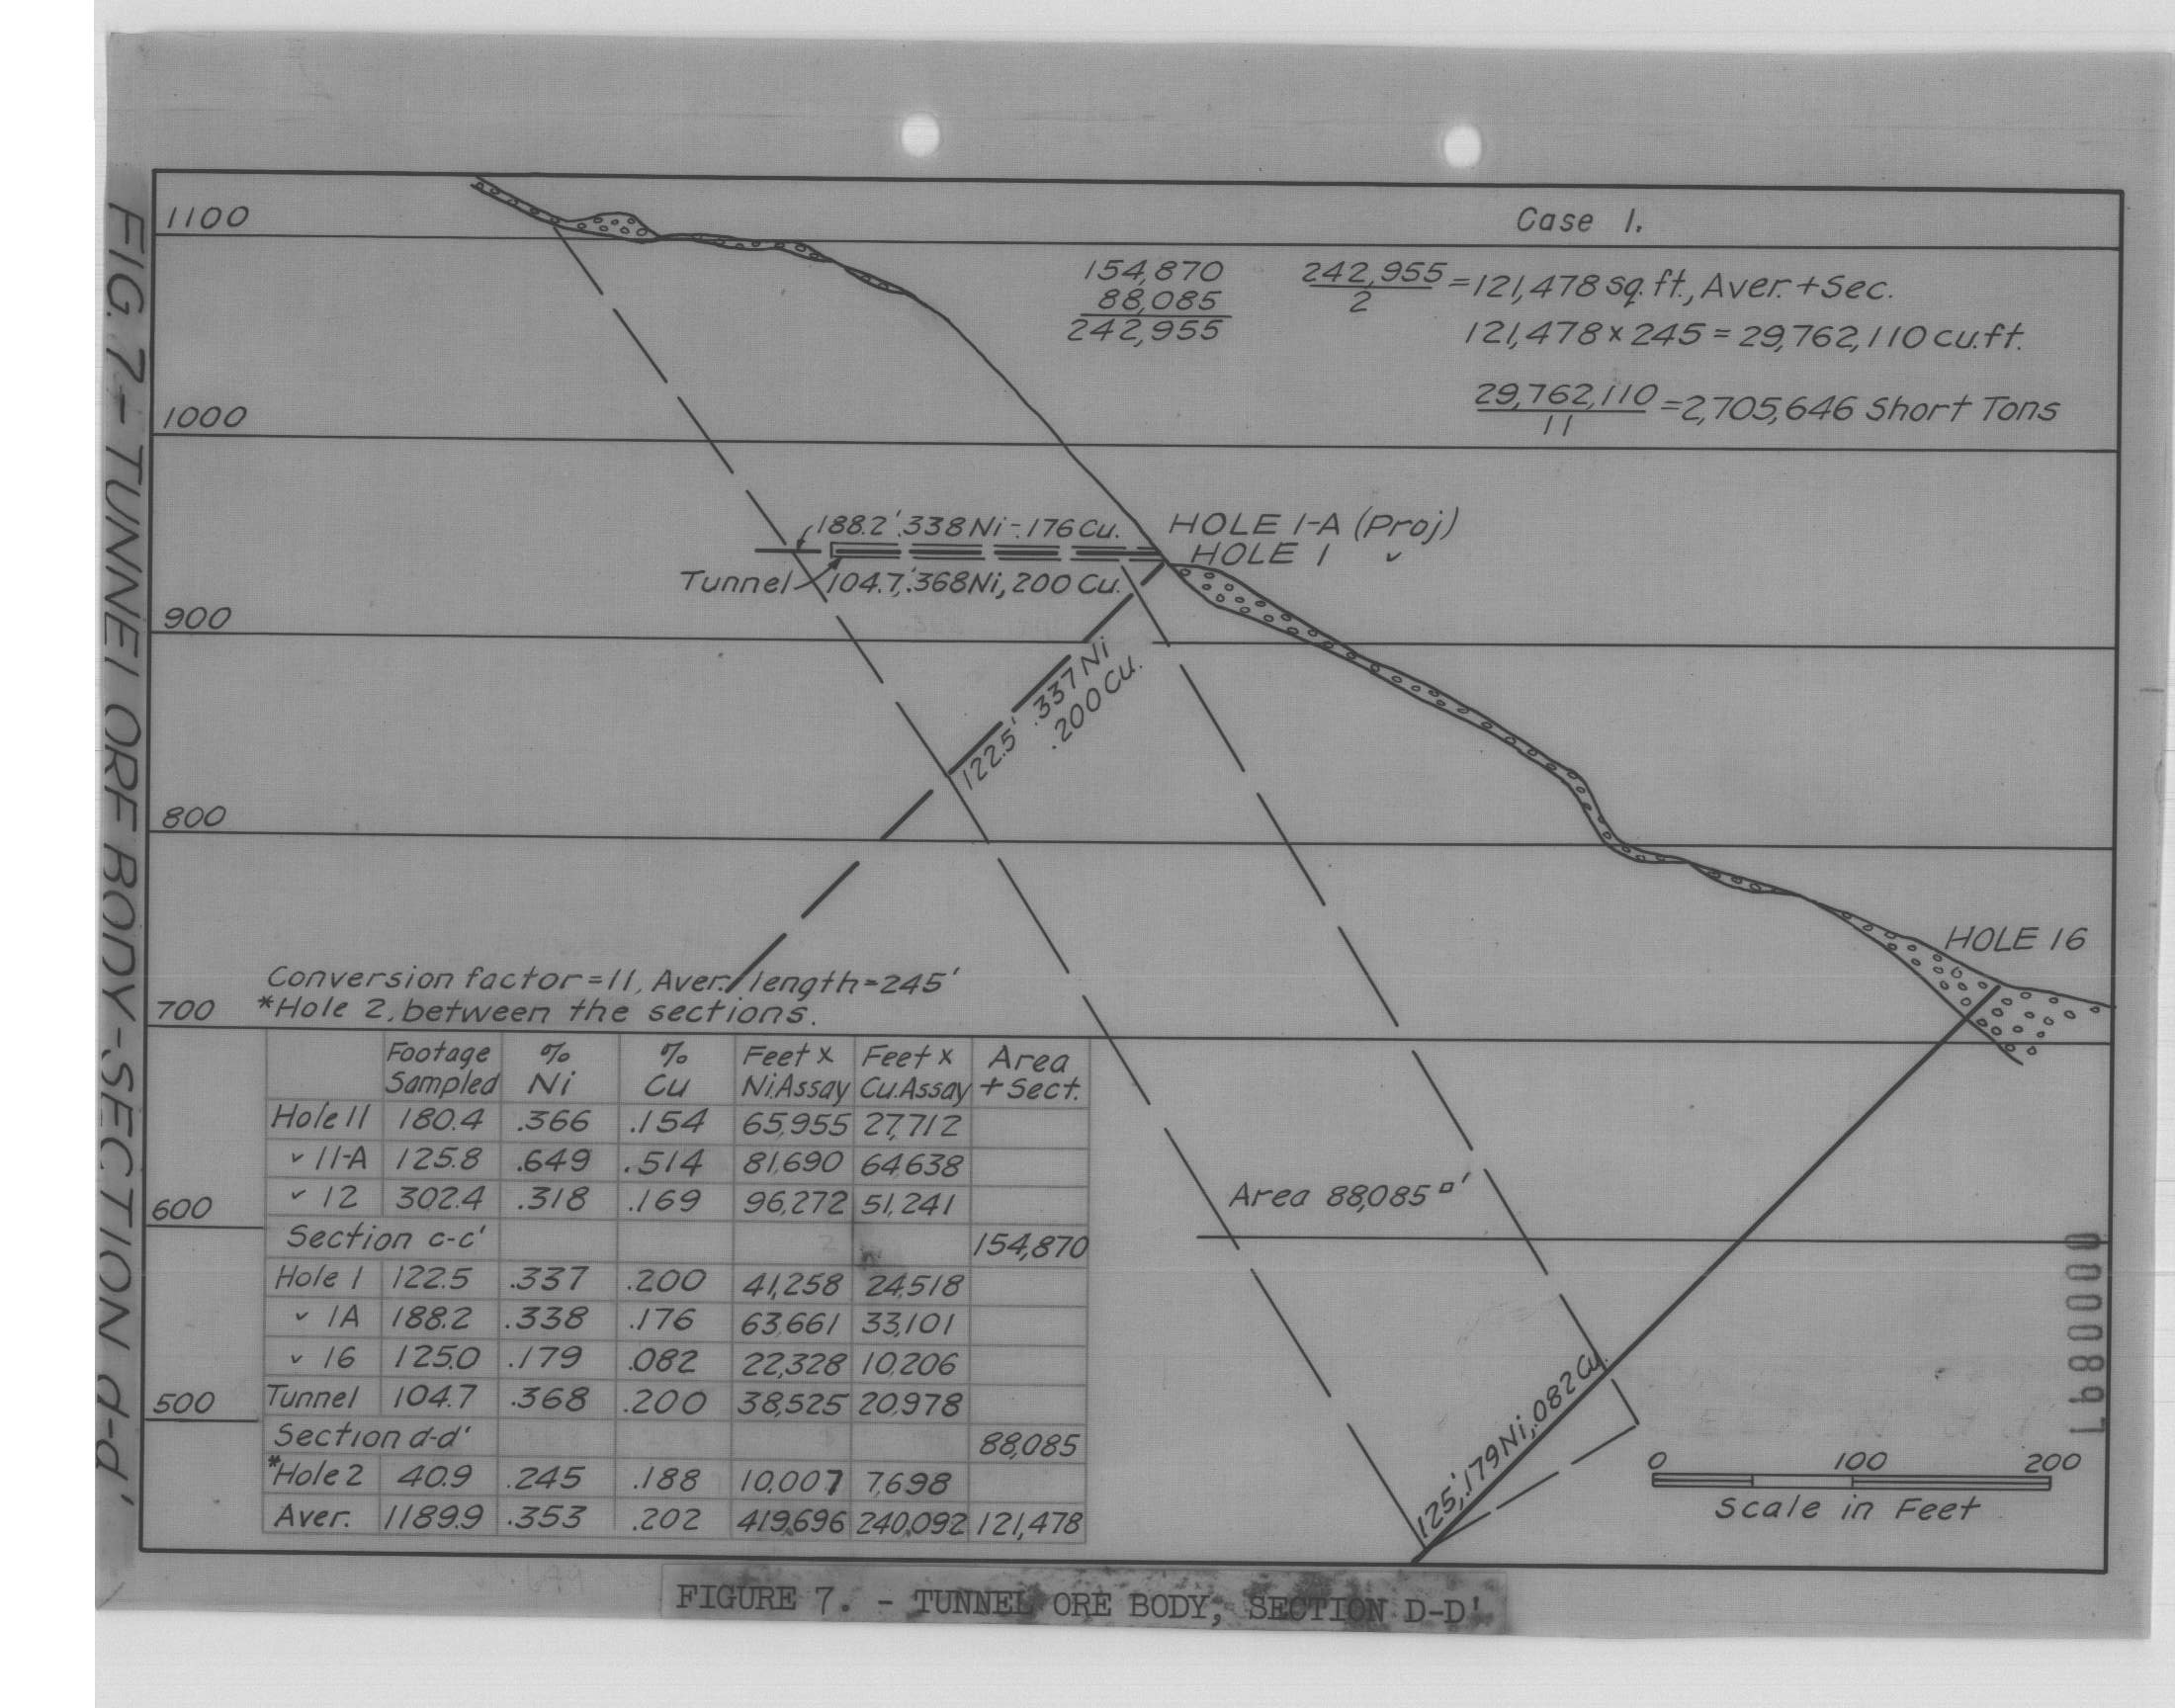 FIG. 7- TUNNEL ORE BODY-SECTION d-d'
1100
Case 1.
154,870
88,085
242,955
242,955/2 = 121,478 sq. ft., Aver. + Sec.
121,478 x 245 = 29,762,110 cu.ft.
29,762,110/11 = 2,705,646 Short Tons
1000
188.2' .338 Ni - .176 Cu.
HOLE 1-A (Proj)
HOLE 1 ✓
Tunnel
104.7', .368 Ni, 200 Cu.
900
122.5' .337 Ni
.200 Cu.
800
HOLE 16
Conversion factor = 11, Aver. length = 245'
*Hole 2, between the sections.
700
Footage Sampled | % Ni | % Cu | Feet x Ni.Assay | Feet x Cu.Assay | Area + Sect.
Hole 11 | 180.4 | .366 | .154 | 65,955 | 27,712
✓ 11-A | 125.8 | .649 | .514 | 81,690 | 64,638
✓ 12 | 302.4 | .318 | .169 | 96,272 | 51,241
Section c-c' | 154,870
Hole 1 | 122.5 | .337 | .200 | 41,258 | 24,518
✓ 1A | 188.2 | .338 | .176 | 63,661 | 33,101
✓ 16 | 125.0 | .179 | .082 | 22,328 | 10,206
Tunnel | 104.7 | .368 | .200 | 38,525 | 20,978
Section d-d' | 88,085
*Hole 2 | 40.9 | .245 | .188 | 10,007 | 7,698
Aver. | 1189.9 | .353 | .202 | 419,696 | 240,092 | 121,478
600
500
Area 88,085 □'
125', .179 Ni, .082 Cu.
0 100 200
Scale in Feet
0000897
FIGURE 7. - TUNNEL ORE BODY, SECTION D-D'